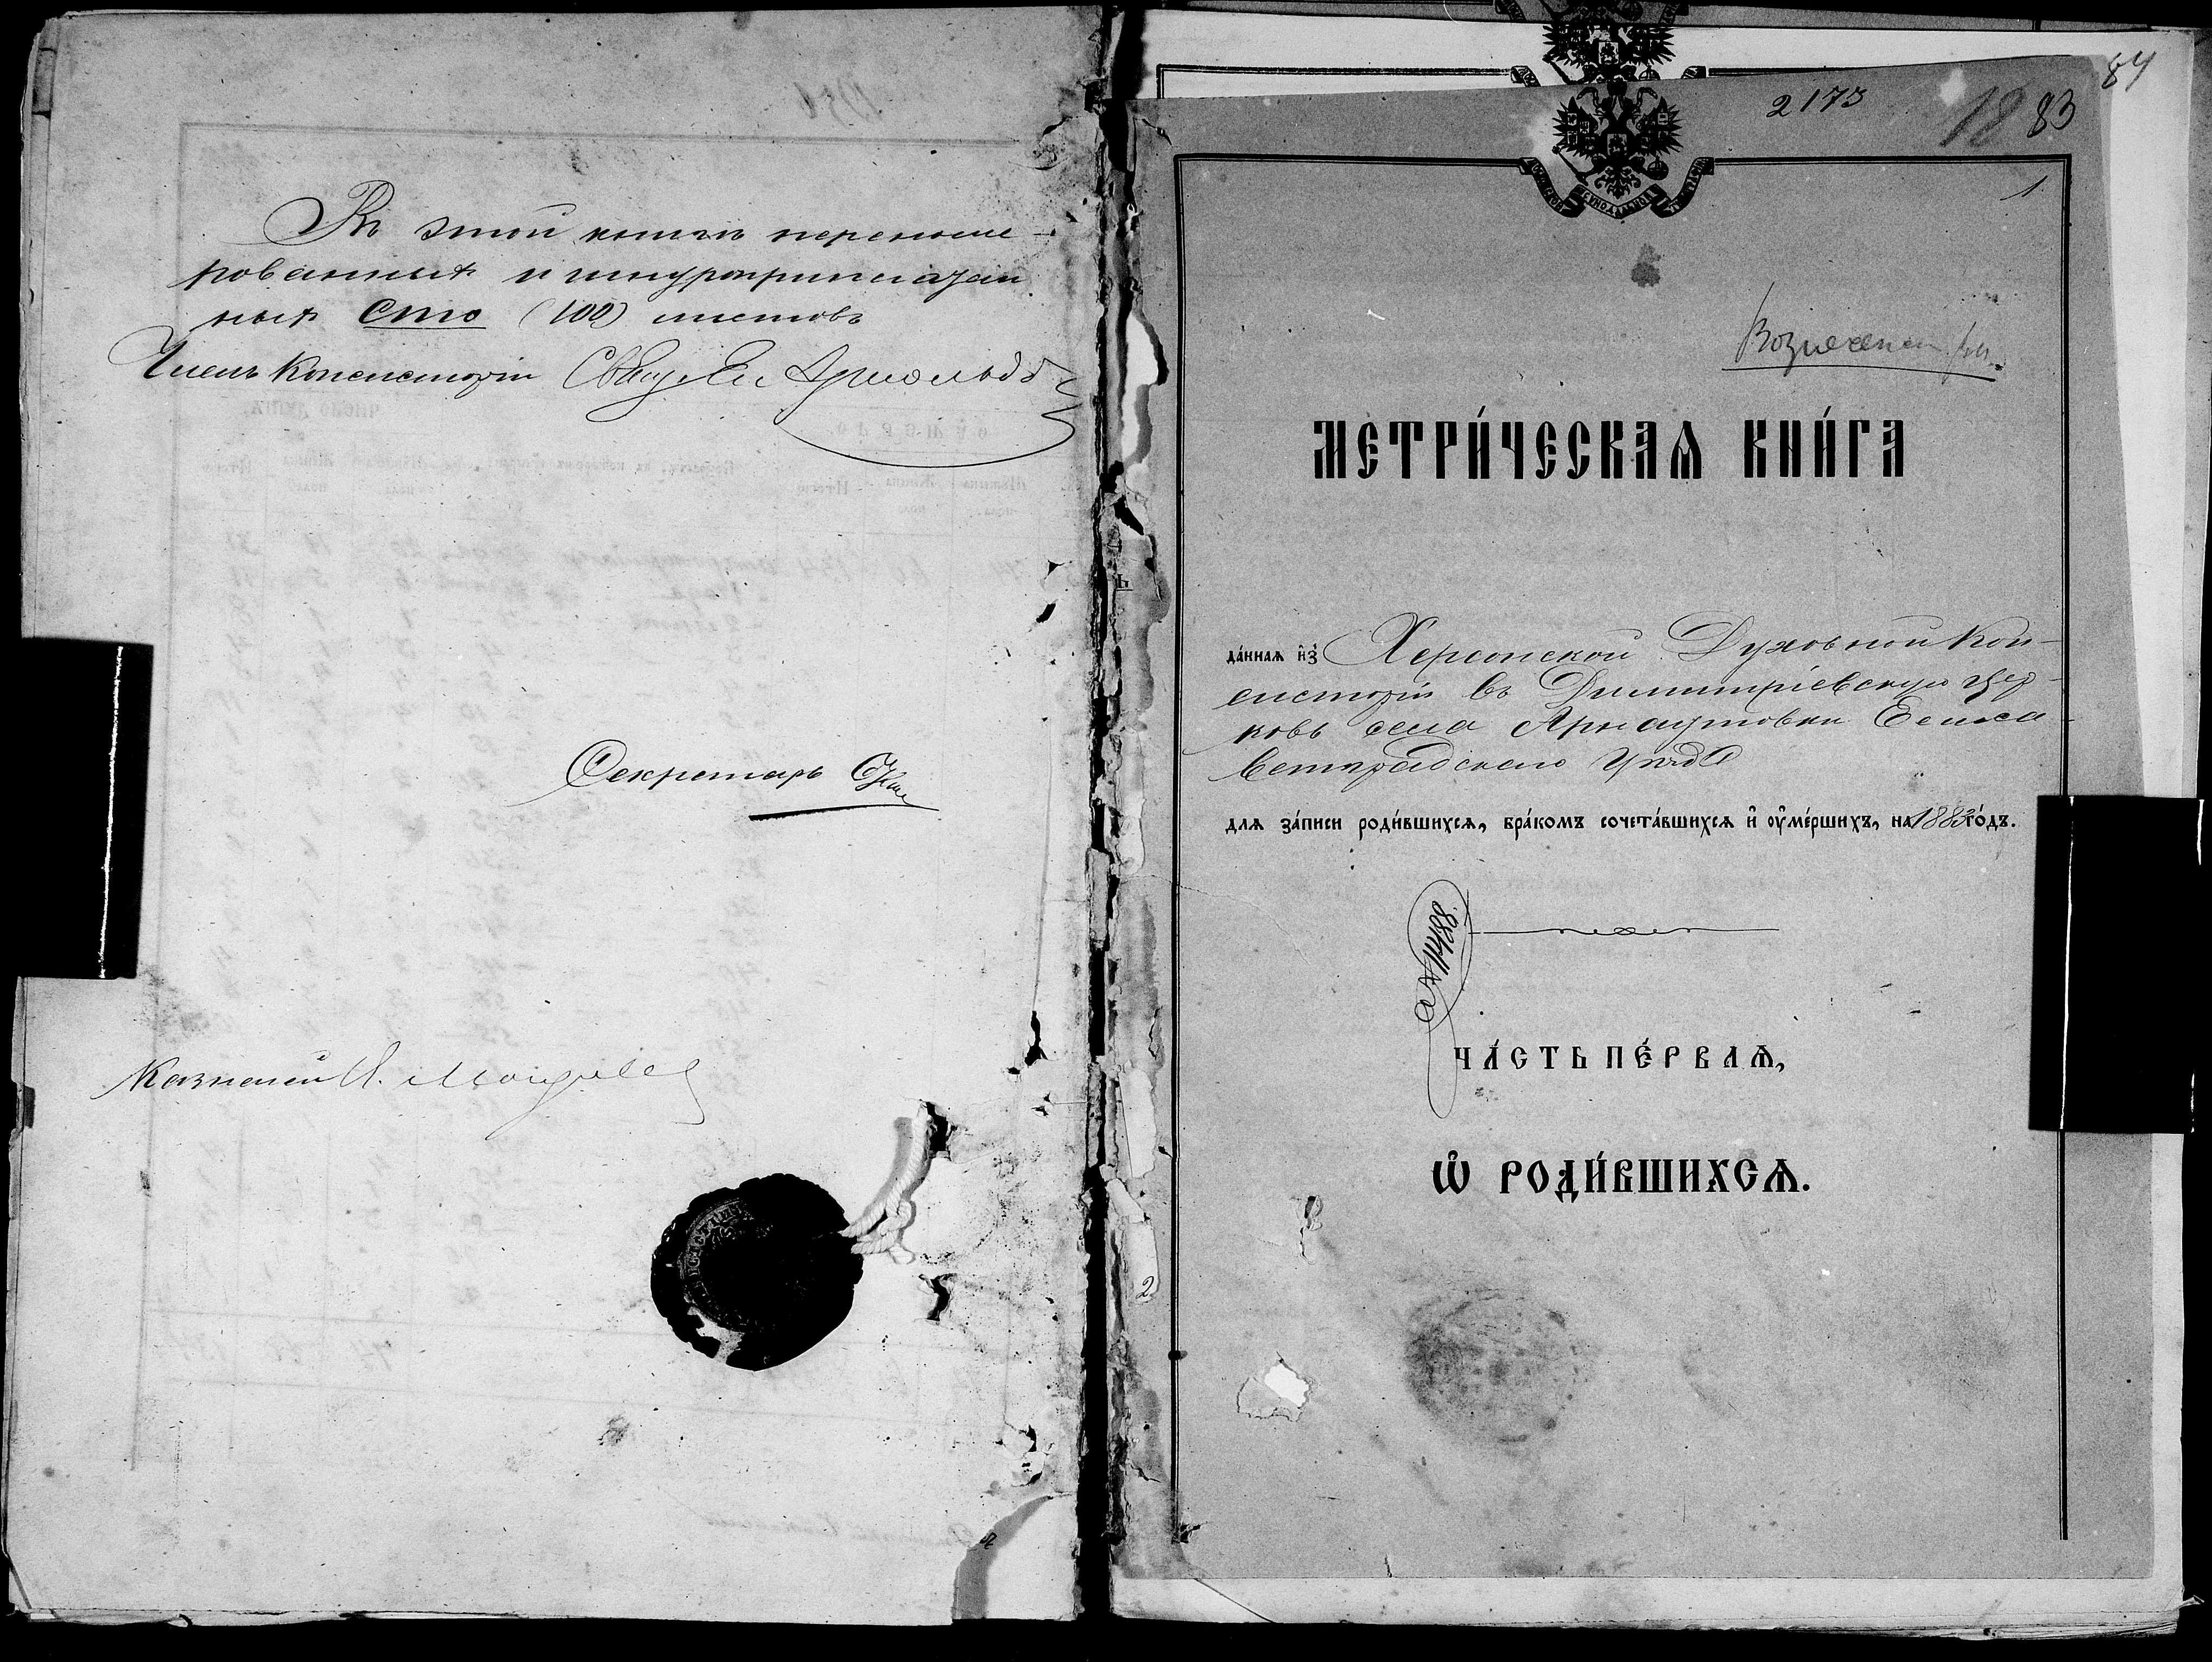 Въ этой книгѣ перенуме-
рованныхъ и шнуроприпечатан
ныхъ Сто (100) листовъ
Членъ Консисторіи Арнольдовъ
Секретарь
Казначей
2173
1883
84
1
Вознесенск
МЕТРИ́ЧЕСКАѦ КНИ́ГА
да́ннаѧ и҆зъ Херсонской Духовной Кон-
систоріи въ Димитріевскую Цер-
ковь села Арнаутовки Елиса-
ветградскаго Уѣзда
длѧ за́писи роди́вшихсѧ, бра́комъ сочета́вшихсѧ и҆ ѹ҆ме́ршихъ, на 1883 го́дъ.
ЧА́СТЬ ПЕ́РВАѦ,
Ѽ РОДИ́ВШИХСѦ.
2